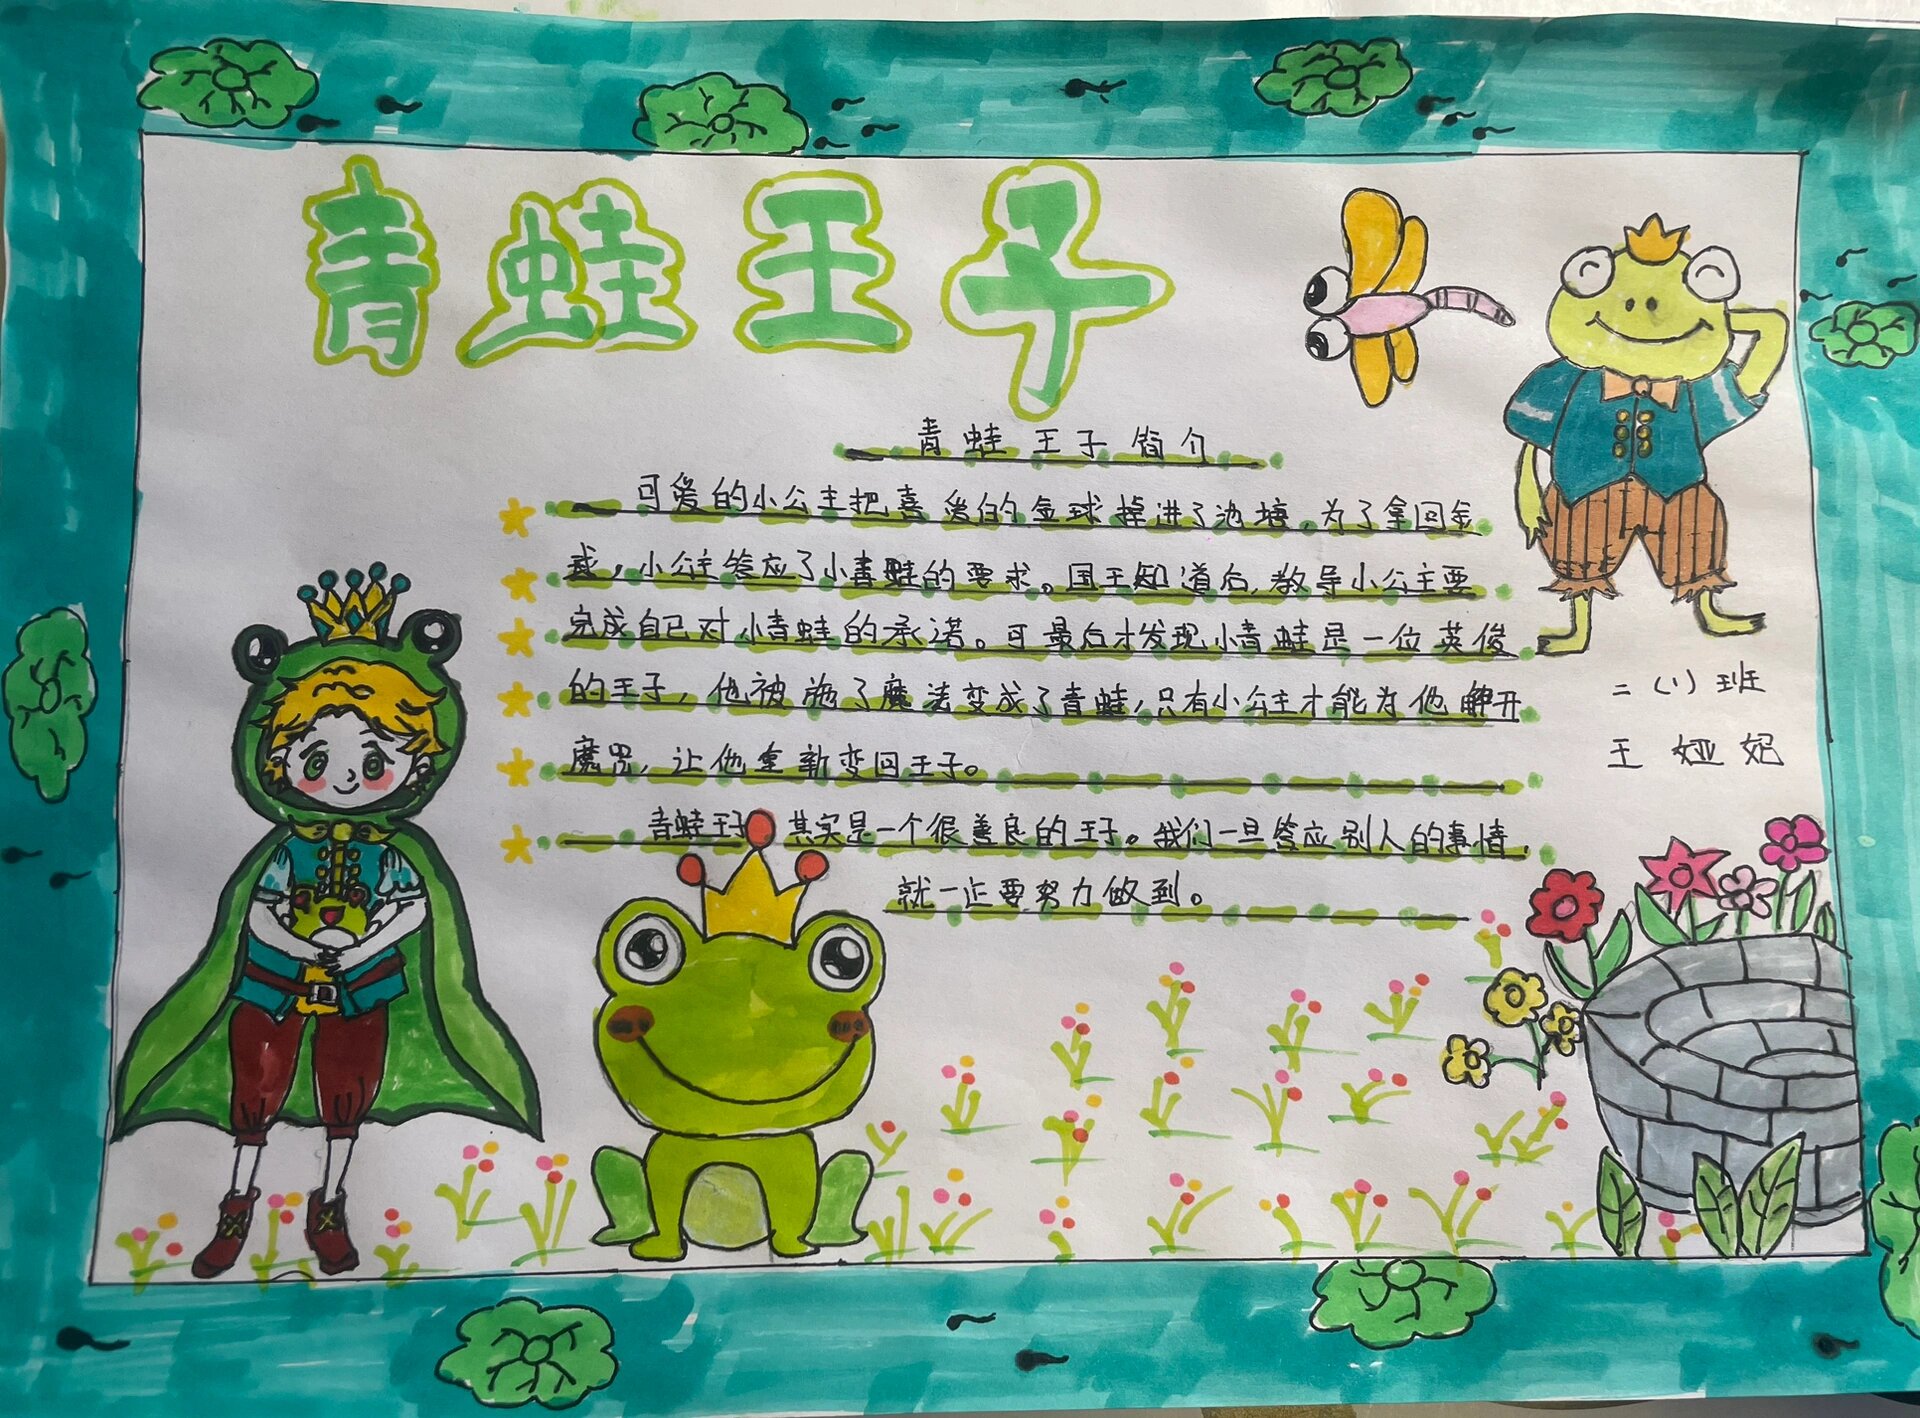 青蛙王子
青蛙王子简介
可爱的小公主把喜爱的金球掉进了池塘,为了拿回金
球,小公主答应了小青蛙的要求。国王知道后,教导小公主要
完成自己对小青蛙的承诺。可最后才发现小青蛙是一位英俊
的王子,他被施了魔法变成了青蛙,只有小公主才能为他解开
魔咒,让他重新变回王子。
青蛙王子其实是一个很善良的王子。我们一旦答应别人的事情,
就一定要努力做到。
二(1)班
王娅妃